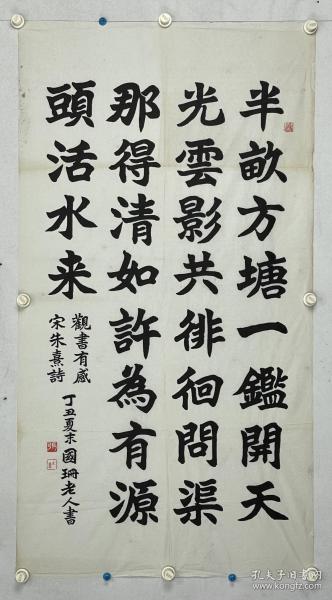 半畝方塘一鑑開天
光雲影共徘徊問渠
那得清如許為有源
頭活水来
觀書有感
宋朱熹詩
丁丑夏末國珊老人書
孔夫子旧书网
kongfz.com